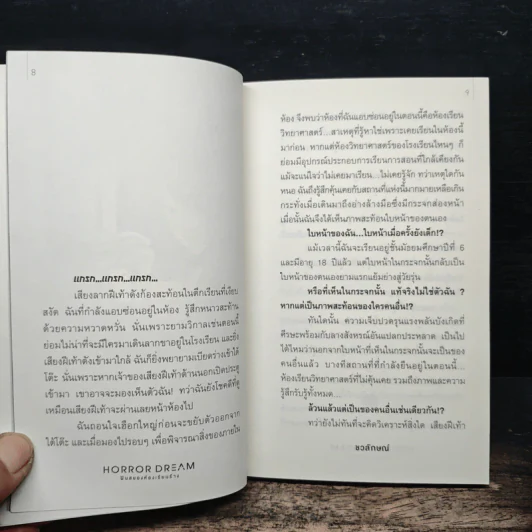 แกรก...แกรก...แกรก...
เสียงลากฝีเท้าดังก้องสะท้อนในตึกเรียนที่เงียบ
สงัด ฉันที่กำลังแอบซ่อนอยู่ในห้อง รู้สึกหนาวสะท้าน
ด้วยความหวาดหวั่น นั่นเพราะยามวิกาลเช่นตอนนี้
ย่อมไม่น่าที่จะมีใครมาเดินลากขาอยู่ในโรงเรียน และยิ่ง
เสียงฝีเท้าดังเข้ามาใกล้ ฉันก็ยิ่งพยายามเบียดร่างเข้าใต้
โต๊ะ นั่นเพราะหากเจ้าของเสียงฝีเท้าด้านนอกเปิดประตู
เข้ามา เขาอาจจะมองเห็นตัวฉัน! ทว่าฉันยังโชคดีที่ดู
เหมือนเสียงฝีเท้าจะผ่านเลยหน้าห้องไป
ฉันถอนใจเฮือกใหญ่ก่อนจะขยับตัวออกจาก
ใต้โต๊ะ และเมื่อมองไปรอบๆ เพื่อพิจารณาสิ่งของภายใน
HORROR DREAM
ห้อง จึงพบว่าห้องที่ฉันแอบซ่อนอยู่ในตอนนี้คือห้องเรียน
วิทยาศาสตร์...สาเหตุที่รู้หาใช่เพราะเคยเรียนในห้องนี้
มาก่อน หากแต่ห้องวิทยาศาสตร์ของโรงเรียนไหนๆ ก็
ย่อมมีอุปกรณ์ประกอบการเรียนการสอนที่ใกล้เคียงกัน
แม้จะแน่ใจว่าไม่เคยมาเรียน...ไม่เคยรู้จัก ทว่าเหตุใดกัน
หนอ ฉันถึงรู้สึกคุ้นเคยกับสถานที่แห่งนี้มากมายเหลือเกิน
กระทั่งเมื่อเดินมาถึงอ่างล้างมือซึ่งมีกระจกส่องหน้า
เมื่อนั้นฉันจึงได้เห็นภาพสะท้อนใบหน้าของตนเอง
ใบหน้าของฉัน...ใบหน้าเมื่อครั้งยังเด็ก!?
แม้เวลานี้ฉันจะเรียนอยู่ชั้นมัธยมศึกษาปีที่ 6
และมีอายุ 18 ปีแล้ว แต่ใบหน้าในกระจกนั้นกลับเป็น
ใบหน้าของตนเองยามแรกแย้มย่างสู่วัยรุ่น
หรือที่เห็นในกระจกนั้น แท้จริงไม่ใช่ตัวฉัน ?
หากแต่เป็นภาพสะท้อนของใครคนอื่น!?
ทันใดนั้น ความเจ็บปวดรุนแรงพลันบังเกิดที่
ศีรษะพร้อมกับลางสังหรณ์อันแปลกประหลาด เป็นไป
ได้ไหมว่านอกจากใบหน้าที่เห็นในกระจกนั้นจะเป็นของ
คนอื่นแล้ว บางทีสถานที่ที่กำลังยืนอยู่ในตอนนี้...
ห้องเรียนวิทยาศาสตร์ที่ไม่คุ้นเคย รวมถึงภาพและความ
รู้สึกรับรู้ทั้งหมด...
ล้วนแล้วแต่เป็นของคนอื่นเช่นเดียวกัน!?
ทว่ายังไม่ทันที่จะคิดวิเคราะห์สิ่งใด เสียงฝีเท้า
ชวลักษณ์